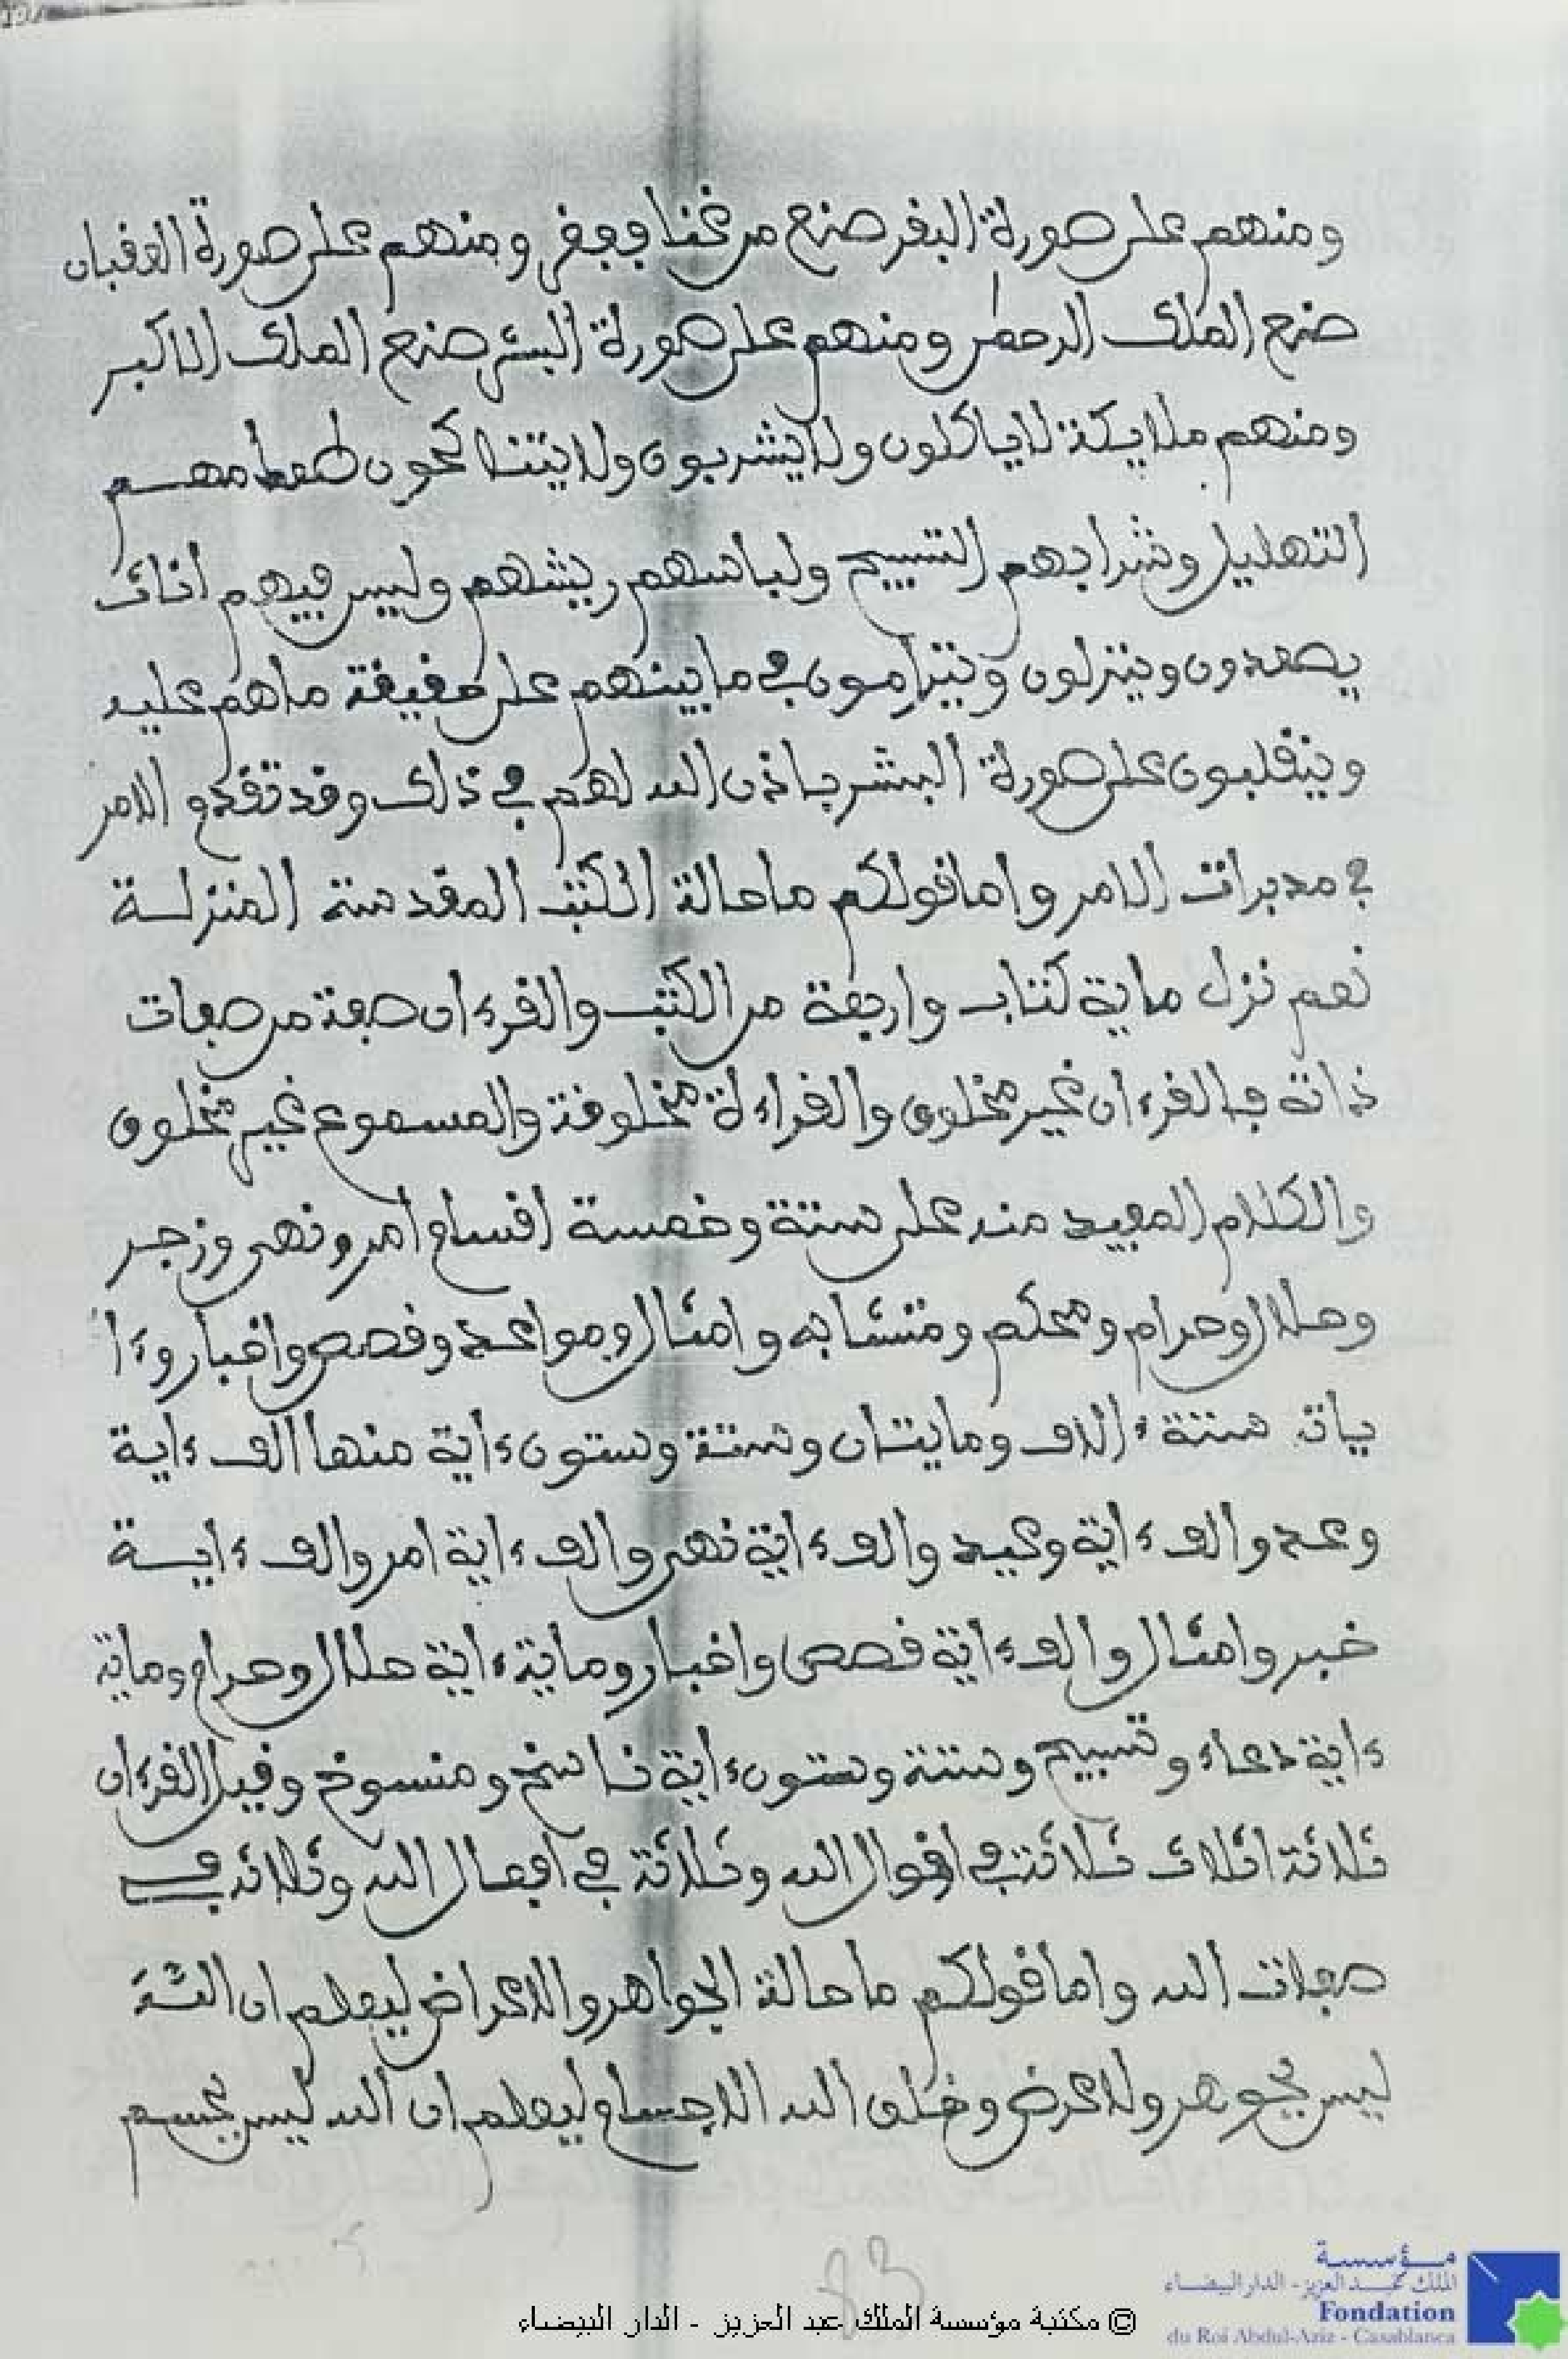 ومنهم على صورة البقر صنع من غنا بعفر ومنهم على صورة العقبان
صنع الملك الرحمن ومنهم على صورة البشر صنع الملك الاكبر
ومنهم ملايكة لا ياكلون ولا يشربون ولا يتناكحون طعامهم
التهليل وشرابهم التسبيح ولباسهم ريشهم وليس فيهم اناث
يصعدون وينزلون ويتراموں في ما بينهم على حقيقة ما هم عليه
وينقلبون على صورة البشر باذن الله لهم في ذلك وقد تقدم الامر
في مدبرات الامر واما قولكم ما حالة الكتب المقدسة المنزلة
نعم نزل ماية كتاب واربعة من الكتب والقرءان صفة من صفات
ذاته فالقرءان غير مخلوق والقراءة مخلوقة والمسموع غير مخلوق
والكلام المفيد منه على ستة وخمسة اقسام امر ونهي وزجر
وحلال وحرام ومحكم ومتشابه وامثال ومواعد وقصص واخبار وءا
يات ستة ءالاف ومايتان وستة وستون ءاية منها الف ءاية
وعد والف ءاية وعيد والف ءاية نهي والف ءاية امر والف ءاية
خبر وامثال والف ءاية قصص واخبار وماية ءاية حلال وحرام وماية
ءاية دعاء وتسبيح وستة وستون ءاية ناسخ ومنسوخ وقيل القرءان
ثلاثة اثلاث ثلاثة في اقوال الله وثلاثة في افعال الله وثلاثة في
صفات الله واما قولكم ما حالة الجواهر والاعراض ليعلم ان الله
ليس بجوهر ولا عرض وخلق الله الاجسام ليعلم ان الله ليس بجسم
83
© مكتبة مؤسسة الملك عبد العزيز - الدار البيضاء
مؤسسة
الملك عبد العزيز - الدار البيضاء
Fondation
du Roi Abdul-Aziz - Casablanca